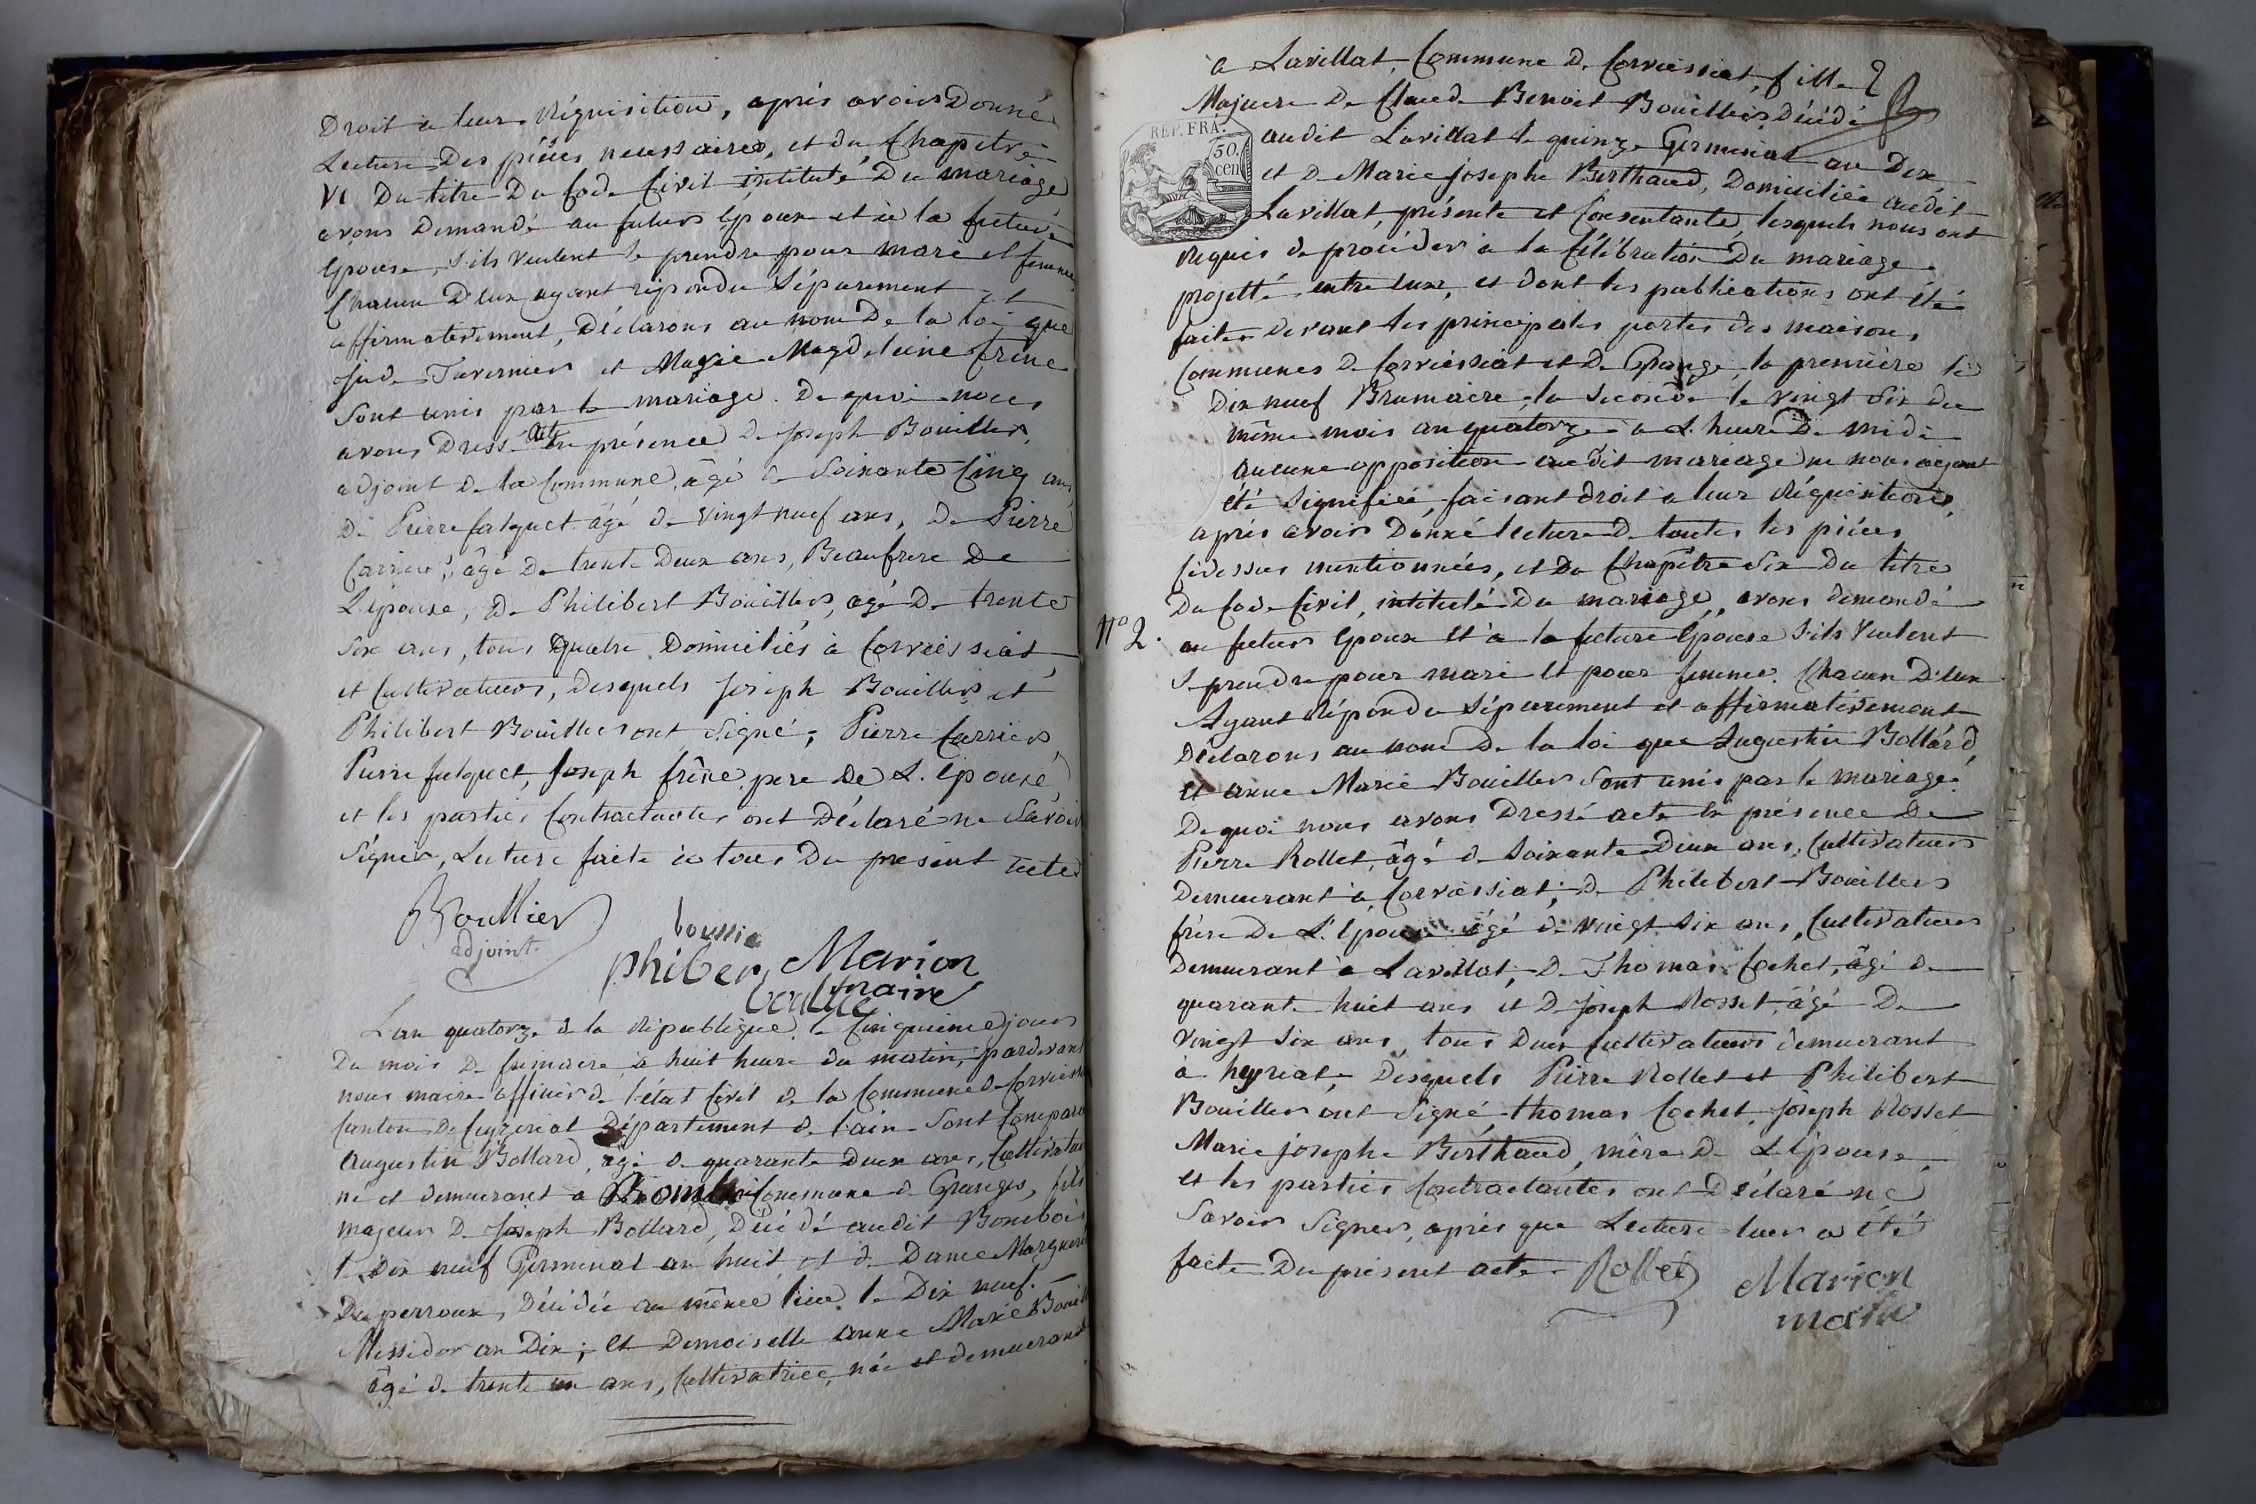 Droit à leur Réquisition, après avoir Donné
Lecture Des pièces necessaires, et du Chapitre
VI Du titre Du Code Civil intitulé Du mariage
avons Demandé au futur Epoux et à la future
Epouse, s'ils veulent se prendre pour mari et femme
Chacun D'eux ayant répondu Séparement et
affirmativement, Déclarons au nom De la loi que
Tavernier et Marie Magdeleine frêne
Sont unis par le mariage. De quoi nous
avons Dressé acte en présence De Joseph Bouillier,
adjoint De la Commune, âgé de Soixante Cinq ans
De Pierre falquet âgé de vingt neuf ans, De Pierre
Carrier, âgé De trente Deux ans, Beaufrere De
L'épouse, De Philibert Bouillier, agé De trente
Six ans, tous quatre Domiciliés à Corveissiat,
et Cultivateurs, Desquels Joseph Bouillier et
Philibert Bouillier ont Signé; Pierre Carrier
Pierre falquet, Joseph frêne, pere De L'épouse,
et les parties Contractantes ont Déclaré ne Savoir
Signer, Lecture faite à tous Du present acte
Boullier
adjoint
Phiber Marion
maire
L'an quatorze de la République le Cinquieme jour
Du mois De frimaire à huit heure du matin, pardevant
nous maire officier de l'état Civil de la Commune de
Canton De Département de l'ain Sont
Augustin Bollard, âgé de quarante Deux ans,
né et demeurant à Commune de Granges, fils
majeur De Joseph Bollard, Décédé audit Bombois
le Dix neuf Germinal an huit et de Dame
Duperroux, Décédée au même lieu le Dix neuf
Messidor an Dix; et Demoiselle anne Marie
âgé de trente un ans, Cultivatrice, née et demeurant
à Lavillat, Commune De Corveissiat, fille
Majeure De Claude Benoit Bouillier, Décédé
REP. FRA.
50.
cen
audit Lavillat le quinze Germinal an Dix
et De Marie Josephe Berthaud, Domiciliée audit
Lavillat, présente et Consentante, lesquels nous ont
requis de procéder à la Célébration Du mariage
projetté entre eux, et dont les publications ont été
faites devant les principales portes des maisons
Communes De Corveissiat et De Grange, la première le
Dix neuf Brumaire, la Seconde le vingt Six du
même mois an quatorze à L'heure De midi
aucune opposition audit mariage ne nous ayant
été Signifiée, faisant droit à leur Réquisition,
après avoir Donné lecture De toutes les pièces
Cidessus mentionnées, et Du Chapitre Six Du titre
Du Code Civil, intitulé Du mariage, avons demandé
N° 2. au futur Epoux et à la future Epouse s'ils veulent
Se prendre pour mari et pour femme. Chacun D'eux
Ayant Répondu Séparement et affirmativement
Déclarons au nom De la loi que Augustin Bollard
et anne Marie Bouillier Sont unis par le mariage.
De quoi nous avons Dressé acte en présence De
Pierre Rollet, âgé de Soixante Deux ans, Cultivateur
Demeurant à Corveissiat, De Philibert Bouillier
frère De L'épouse âgé de vingt Six ans, Cultivateur
Demeurant à Lavillat, De Thomas Cochet, âgé de
quarante huit ans et De Joseph Rosset, âgé De
vingt Six ans, tous Deux Cultivateurs demeurant
à heyriat, Desquels Pierre Rollet et Philibert
Bouillier ont Signé, thomas Cochet, Joseph Rosset
Marie josephe Berthaud, mère De L'épouse,
et les parties Contractantes ont Déclaré ne
Savoir Signer, après que Lecture leur a été
faite Du présent acte. Rollet Marion
maire